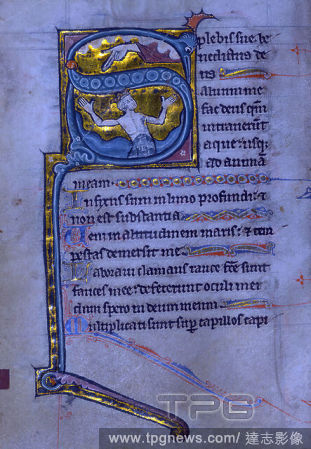 plebis sue be
nedictus de
us
aluum me
fac deus qm̄
intrauerūt
aque usq̄;
ad animā
meam
Infixus sum in limo profundi: ⁊
non est substantia
Veni in altitudinem maris: ⁊ tem
pestas demersit me
Laboraui clamans rauce fc̄e sunt
fauces mee: defecerunt oculi mei
dum spero in deum meum
Multiplicati sunt sup̄ capillos capi
TPG
www.tpgnews.com/ 達志影像